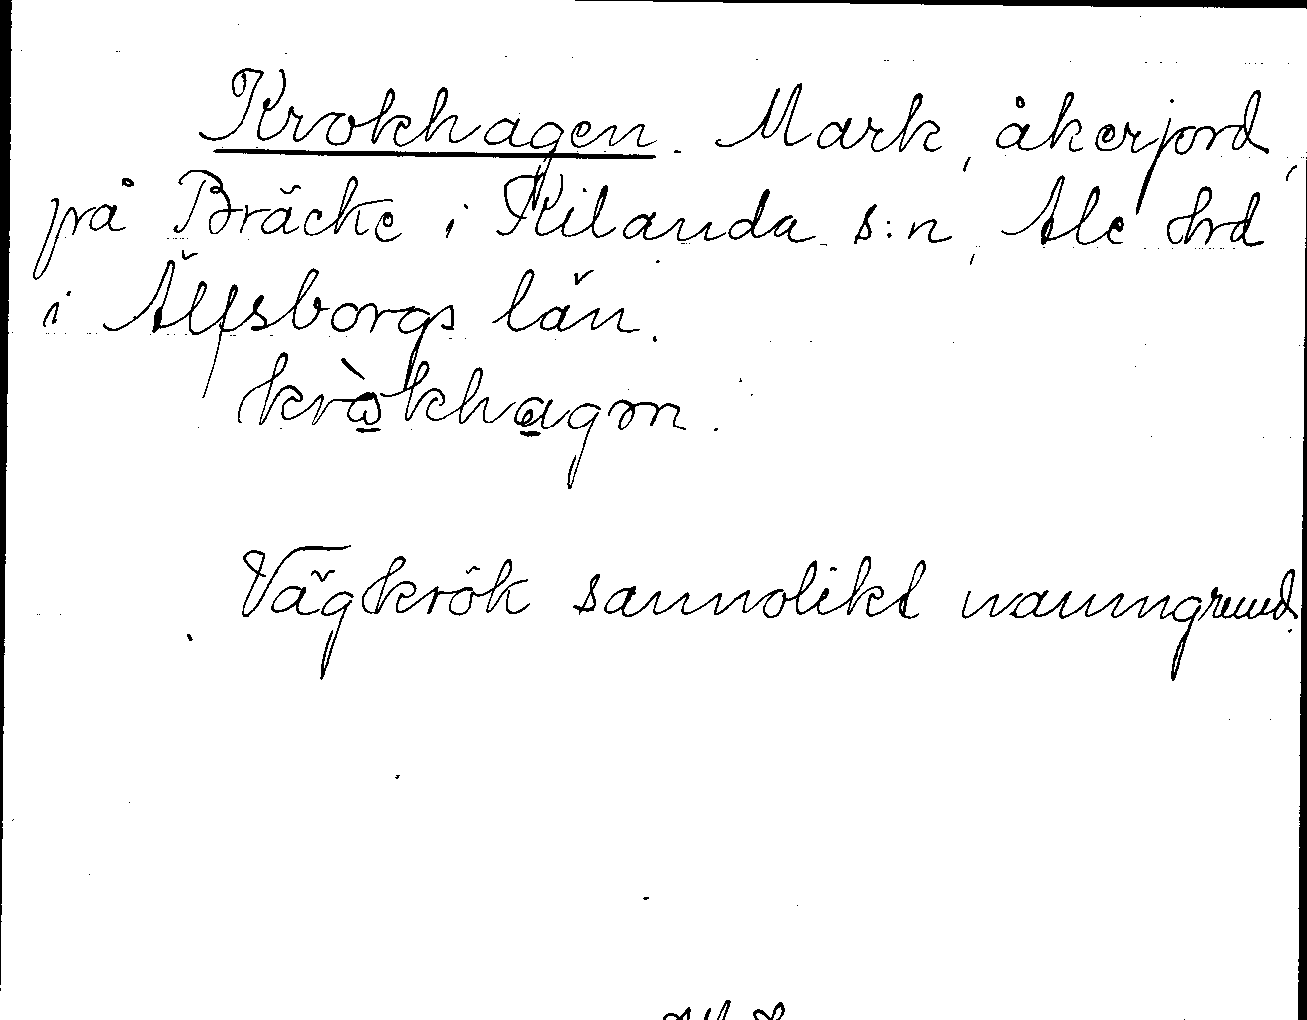 Krokhagen. Mark, åkerjord,
på Bräcke i Kilanda s:n, Ale hrd
i Älfsborgs län.
krò̱kha̱gən.
Vägkrök sannolikt namngrund.